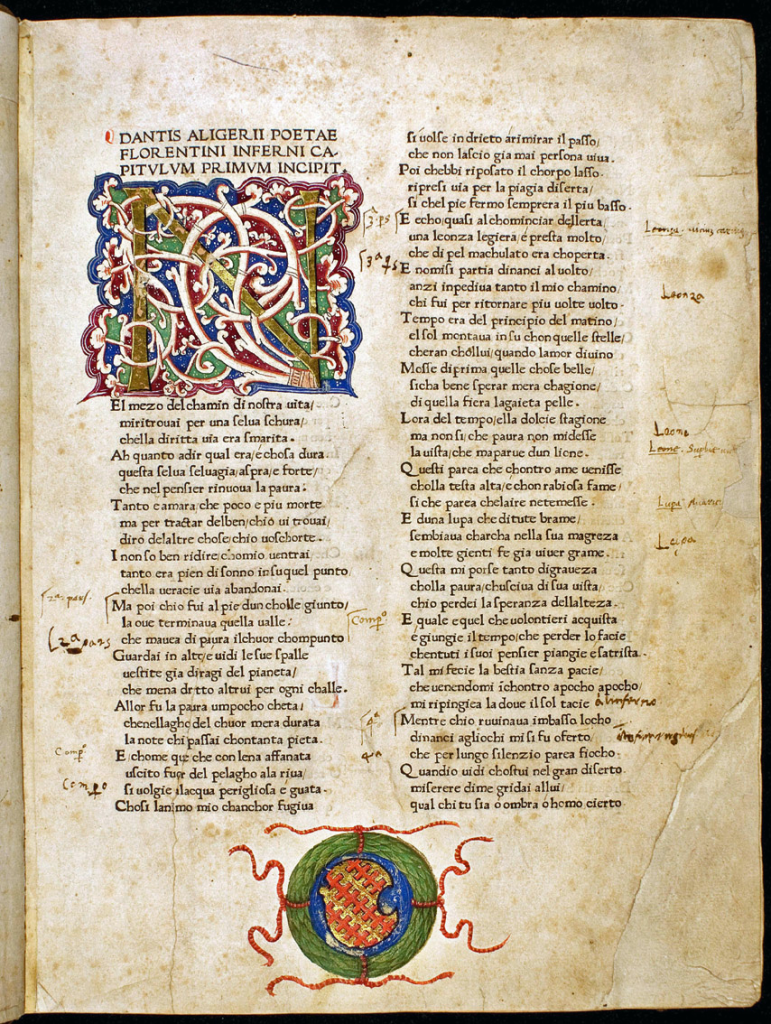 DANTIS ALIGERII POETAE
FLORENTINI INFERNI CA-
PITVLVM PRIMVM INCIPIT.
N
El mezo del chamin di nostra uita/
miritrouai per una selua schura/
chella diritta uia era smarita.
Ah quanto adir qual era/e chosa dura
questa selua seluagia/aspra/e forte/
che nel pensier rinuoua la paura:
Tanto e amara/che poco e piu morte
ma per tractar delben/chio ui trouai/
diro delaltre chose/chio uoschorte.
I non so ben ridire/chomio uentrai
tanto era pien di sonno insuquel punto
chella ueracie uia abandonai.
2ª pars.
Ma poi chio fui al pie dun cholle giunto/
la oue terminaua quella ualle:
2ª pars
che mauea di paura ilchuor chompunto
Guardai in alto/e uidi le sue spalle
uestite gia diragi del pianeta/
che mena dritto altrui per ogni challe.
Allor fu la paura umpocho cheta/
chenellagho del chuor mera durata
la note chi passai chontanta pieta.
Compº
E/chome que che con lena affanata
uscito fuor del pelagho ala riua/
Compº
si uolgie ilacqua perigliosa e guata.
Chosi lanimo mio chanchor fugiua
si uolse indrieto arimirar il passo/
che non lascio gia mai persona uiua.
Poi chebbi riposato il chorpo lasso
ripresi uia per la piagia diserta/
si chel pie fermo semprera il piu basso.
3ª ps
E echo/quasi al chominciar dellerta/
una leonza legiera/e presta molto/
che di pel machulato era choperta.
3ª ps
E nomisi partia dinanci al uolto/
anzi inpediua tanto il mio chamino/
Leonza
chi fui per ritornare piu uolte uolto.
Tempo era del principio del matino/
el sol montaua insu chonquelle stelle/
cheran chollui/quando lamor diuino
Mosse diprima quelle chose belle/
sicha bene sperar mera chagione/
di quella fiera lagaieta pelle.
Lora del tempo/ella dolcie stagione
Leone
ma non si/che paura non midesse
Leone.
la uista/che maparue dun lione.
Questi parea che chontro ame uenisse
cholla testa alta/e chon rabiosa fame/
Lupa
si che parea chelaire netemesse.
E duna lupa che ditute brame/
Lupa
sembiaua charcha nella sua magreza
e molte gienti fe gia uiuer grame.
Questa mi porse tanto digraueza
cholla paura/chusciua di sua uista/
chio perdei la speranza dellalteza.
Compº
E quale e quel che uolontieri acquista
e giungie il tempo/che perder lo facie
chentuti i suoi pensier piangie e satrista.
Tal mi fecie la bestia sanza pacie/
che uenendomi ichontro apocho apocho/
mi ripingiea la doue il sol tacie
4ª
Mentre chio ruuinaua imbasso locho
dinanci agliochi mi si fu oferto/
4ª
che per lungo silenzio parea fiocho.
Quandio uidi chostui nel gran diserto
miserere dime gridai allui/
qual chi tu sia o ombra o homo cierto